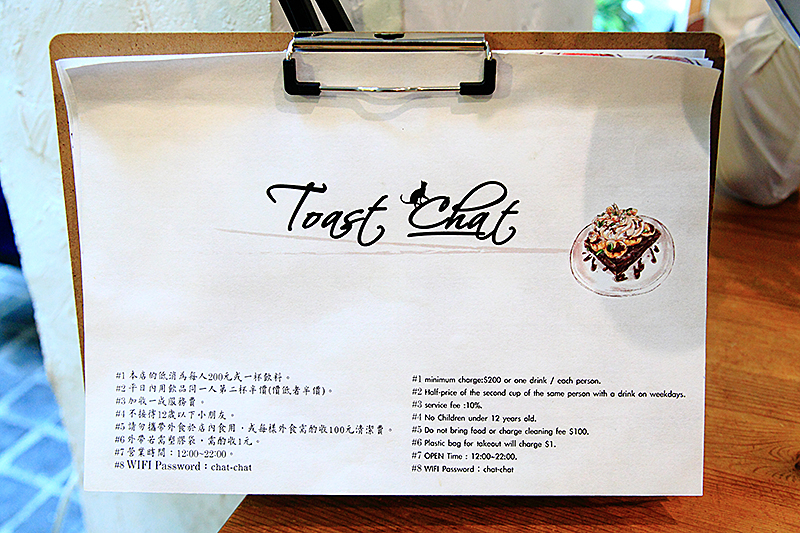 Toast Chat
#1 本店的低消為每人200元或一杯飲料。
#2 平日內用飲品同一人第二杯半價(價低者半價)。
#3 加收一成服務費。
#4 不接待12歲以下小朋友。
#5 請勿攜帶外食於店內食用，或每樣外食需酌收100元清潔費。
#6 外帶若需塑膠袋，需酌收1元。
#7 營業時間：12:00~22:00。
#8 WIFI Password：chat-chat
#1 minimum charge:$200 or one drink / each person.
#2 Half-price of the second cup of the same person with a drink on weekdays.
#3 service fee :10%.
#4 No Children under 12 years old.
#5 Do not bring food or charge cleaning fee $100.
#6 Plastic bag for takeout will charge $1.
#7 OPEN Time : 12:00~22:00.
#8 WIFI Password：chat-chat